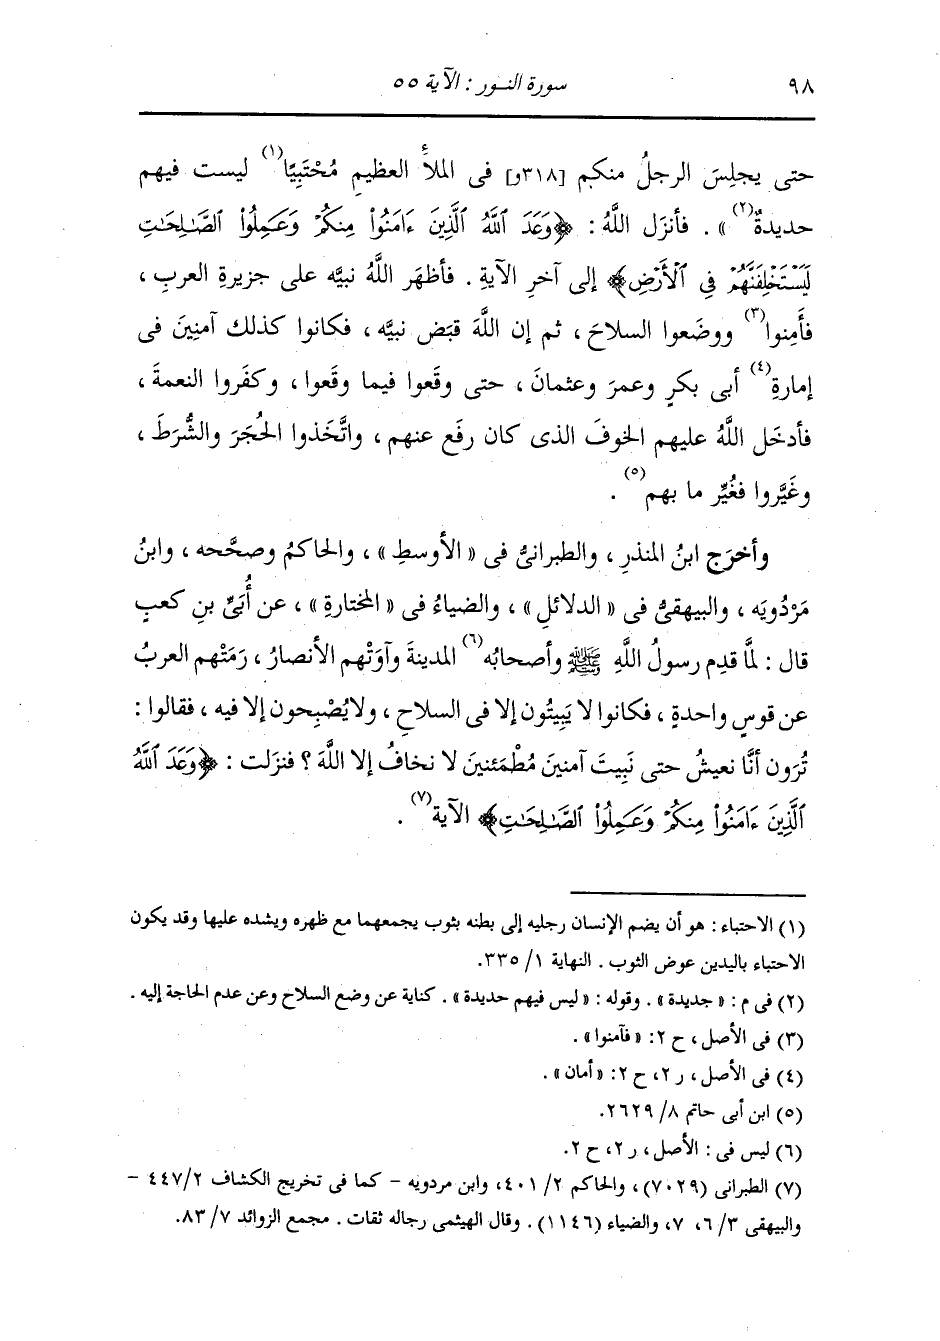 ٩٨ سورة النور : الآية ٥٥
حتى يجلِسَ الرجلُ منكم [٣١٨و] فى الملأُ العظيمِ مُحْتَبِيًا(١) ليست فيهم
حديدةٌ(٢) » . فأنزل اللَّهُ : ﴿وَعَدَ ٱللَّهُ ٱلَّذِينَ ءَامَنُوا۟ مِنكُمْ وَعَمِلُوا۟ ٱلصَّـٰلِحَـٰتِ
لَيَسْتَخْلِفَنَّهُمْ فِي ٱلْأَرْضِ﴾ إلى آخرِ الآيةِ . فأظهَر اللَّهُ نبيَّه على جزيرةِ العربِ ،
فأَمِنوا(٣) ووضَعوا السلاحَ ، ثم إن اللَّهَ قبَض نبيَّه ، فكانوا كذلك آمنِينَ فى
إمارةِ(٤) أبى بكرٍ وعمرَ وعثمانَ ، حتى وقَعوا فيما وقَعوا ، وكفَروا النعمةَ ،
فأدخَل اللَّهُ عليهم الخوفَ الذى كان رفَع عنهم ، واتَّخَذوا الحُجَرَ والشُّرَطَ ،
وغَيَّروا فغُيِّر ما بهم(٥) .
وأخرَج ابنُ المنذرِ ، والطبرانىُّ فى « الأوسطِ » ، والحاكمُ وصحَّحه ، وابنُ
مَرْدُويَه ، والبيهقىُّ فى « الدلائلِ » ، والضياءُ فى « المختارةِ » ، عن أُبَىِّ بنِ كعبٍ
قال : لمَّا قدِم رسولُ اللَّهِ ﷺ وأصحابُه(٦) المدينةَ وآوَتْهم الأنصارُ ، رَمَتْهم العربُ
عن قوسٍ واحدةٍ ، فكانوا لا يَبِيتُون إلا فى السلاحِ ، ولا يُصْبِحون إلا فيه ، فقالوا :
تُرَون أنَّا نعيشُ حتى نَبِيتَ آمنينَ مُطْمَئنينَ لا نخافُ إلا اللَّهَ ؟ فنزَلت : ﴿وَعَدَ ٱللَّهُ
ٱلَّذِينَ ءَامَنُوا۟ مِنكُمْ وَعَمِلُوا۟ ٱلصَّـٰلِحَـٰتِ﴾ الآية(٧) .
(١) الاحتباء : هو أن يضم الإنسان رجليه إلى بطنه بثوب يجمعهما مع ظهره ويشده عليها وقد يكون
الاحتباء باليدين عوض الثوب . النهاية ١/ ٣٣٥.
(٢) فى م : « جديدة » . وقوله : « ليس فيهم حديدة » . كناية عن وضع السلاح وعن عدم الحاجة إليه .
(٣) فى الأصل ، ح ٢: « فآمنوا » .
(٤) فى الأصل ، ر ٢، ح ٢: « أمان » .
(٥) ابن أبى حاتم ٨/ ٢٦٢٩.
(٦) ليس فى : الأصل ، ر ٢، ح ٢.
(٧) الطبرانى (٧٠٢٩) ، والحاكم ٢/ ٤٠١، وابن مردويه - كما فى تخريج الكشاف ٤٤٧/٢ -
والبيهقى ٣/ ٦، ٧، والضياء (١١٤٦) . وقال الهيثمى رجاله ثقات . مجمع الزوائد ٧/ ٨٣.